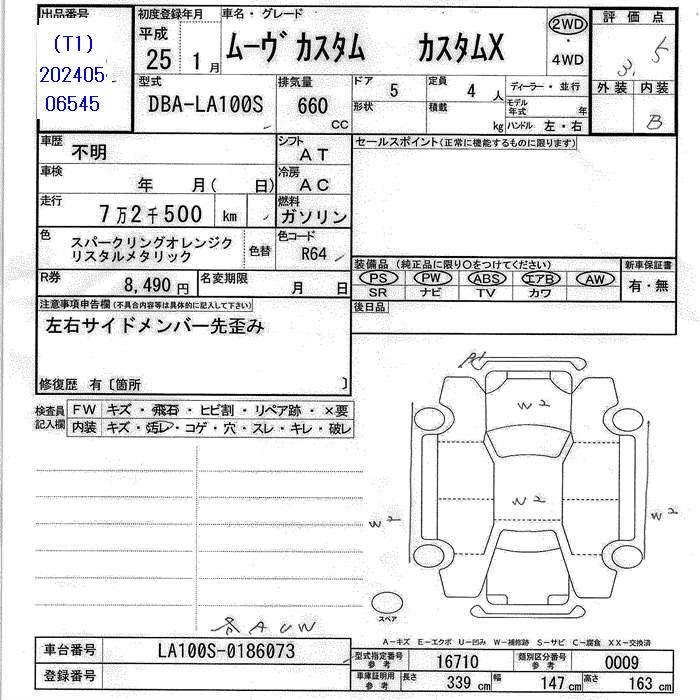 出品番号
(T1)
202405
06545
初度登録年月
平成
25 1月
車名・グレード
ムーヴ カスタム カスタムX
2WD
・
4WD
評価点
3.5
外装 内装
B
型式
DBA-LA100S
排気量
660
CC
ドア 5
形状
定員 4 人
積載 kg
ディーラー・並行
モデル年式 年
ハンドル 左・右
車歴
不明
シフト
AT
車検
年 月( 日)
冷房
AC
走行
7万2千500 km
燃料
ガソリン
色
スパークリングオレンジク
リスタルメタリック
色替
色コード
R64
R券
8,490円
名変期限
月 日
セールスポイント(正常に機能するものに限ります)
装備品(純正品に限り○をつけてください)
PS PW ABS エアB AW
SR ナビ TV カワ
新車保証書
有・無
後日品
注意事項申告欄(不具合内容等は具体的に記入して下さい)
左右サイドメンバー先歪み
修復歴 有〔箇所 〕
検査員
記入欄
FW キズ・飛石・ヒビ割・リペア跡・×要
内装 キズ・汚レ・コゲ・穴・スレ・キレ・破レ
A1
W2
W2
W2
W2
スペア
各AUW
A-キズ E-エクボ U-凹み W-補修跡 S-サビ C-腐食 XX-交換済
車台番号
LA100S-0186073
登録番号
型式指定番号
参考
16710
類別区分番号
参考
0009
車庫証明用
参考
長さ 339 cm
幅 147 cm
高さ 163 cm